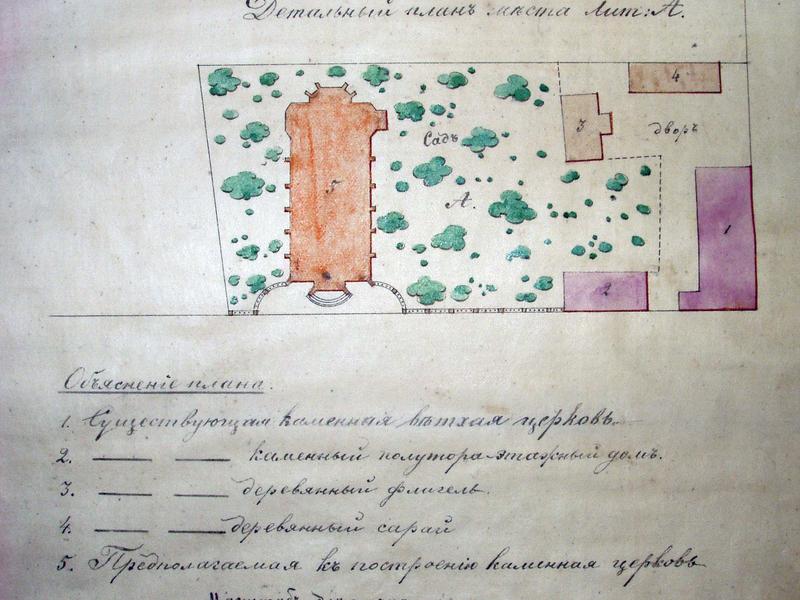 Детальный планъ мѣста Лит: А.
4
3
дворъ
Садъ
5
А.
1
2
Объясненіе плана.
1. Существующая каменная вѣтхая церковь
2. — — каменный полутора-этажный домъ.
3. — — деревянный флигель.
4. — — деревянный сарай
5. Предполагаемая къ построенію каменная церковь
Масштабъ